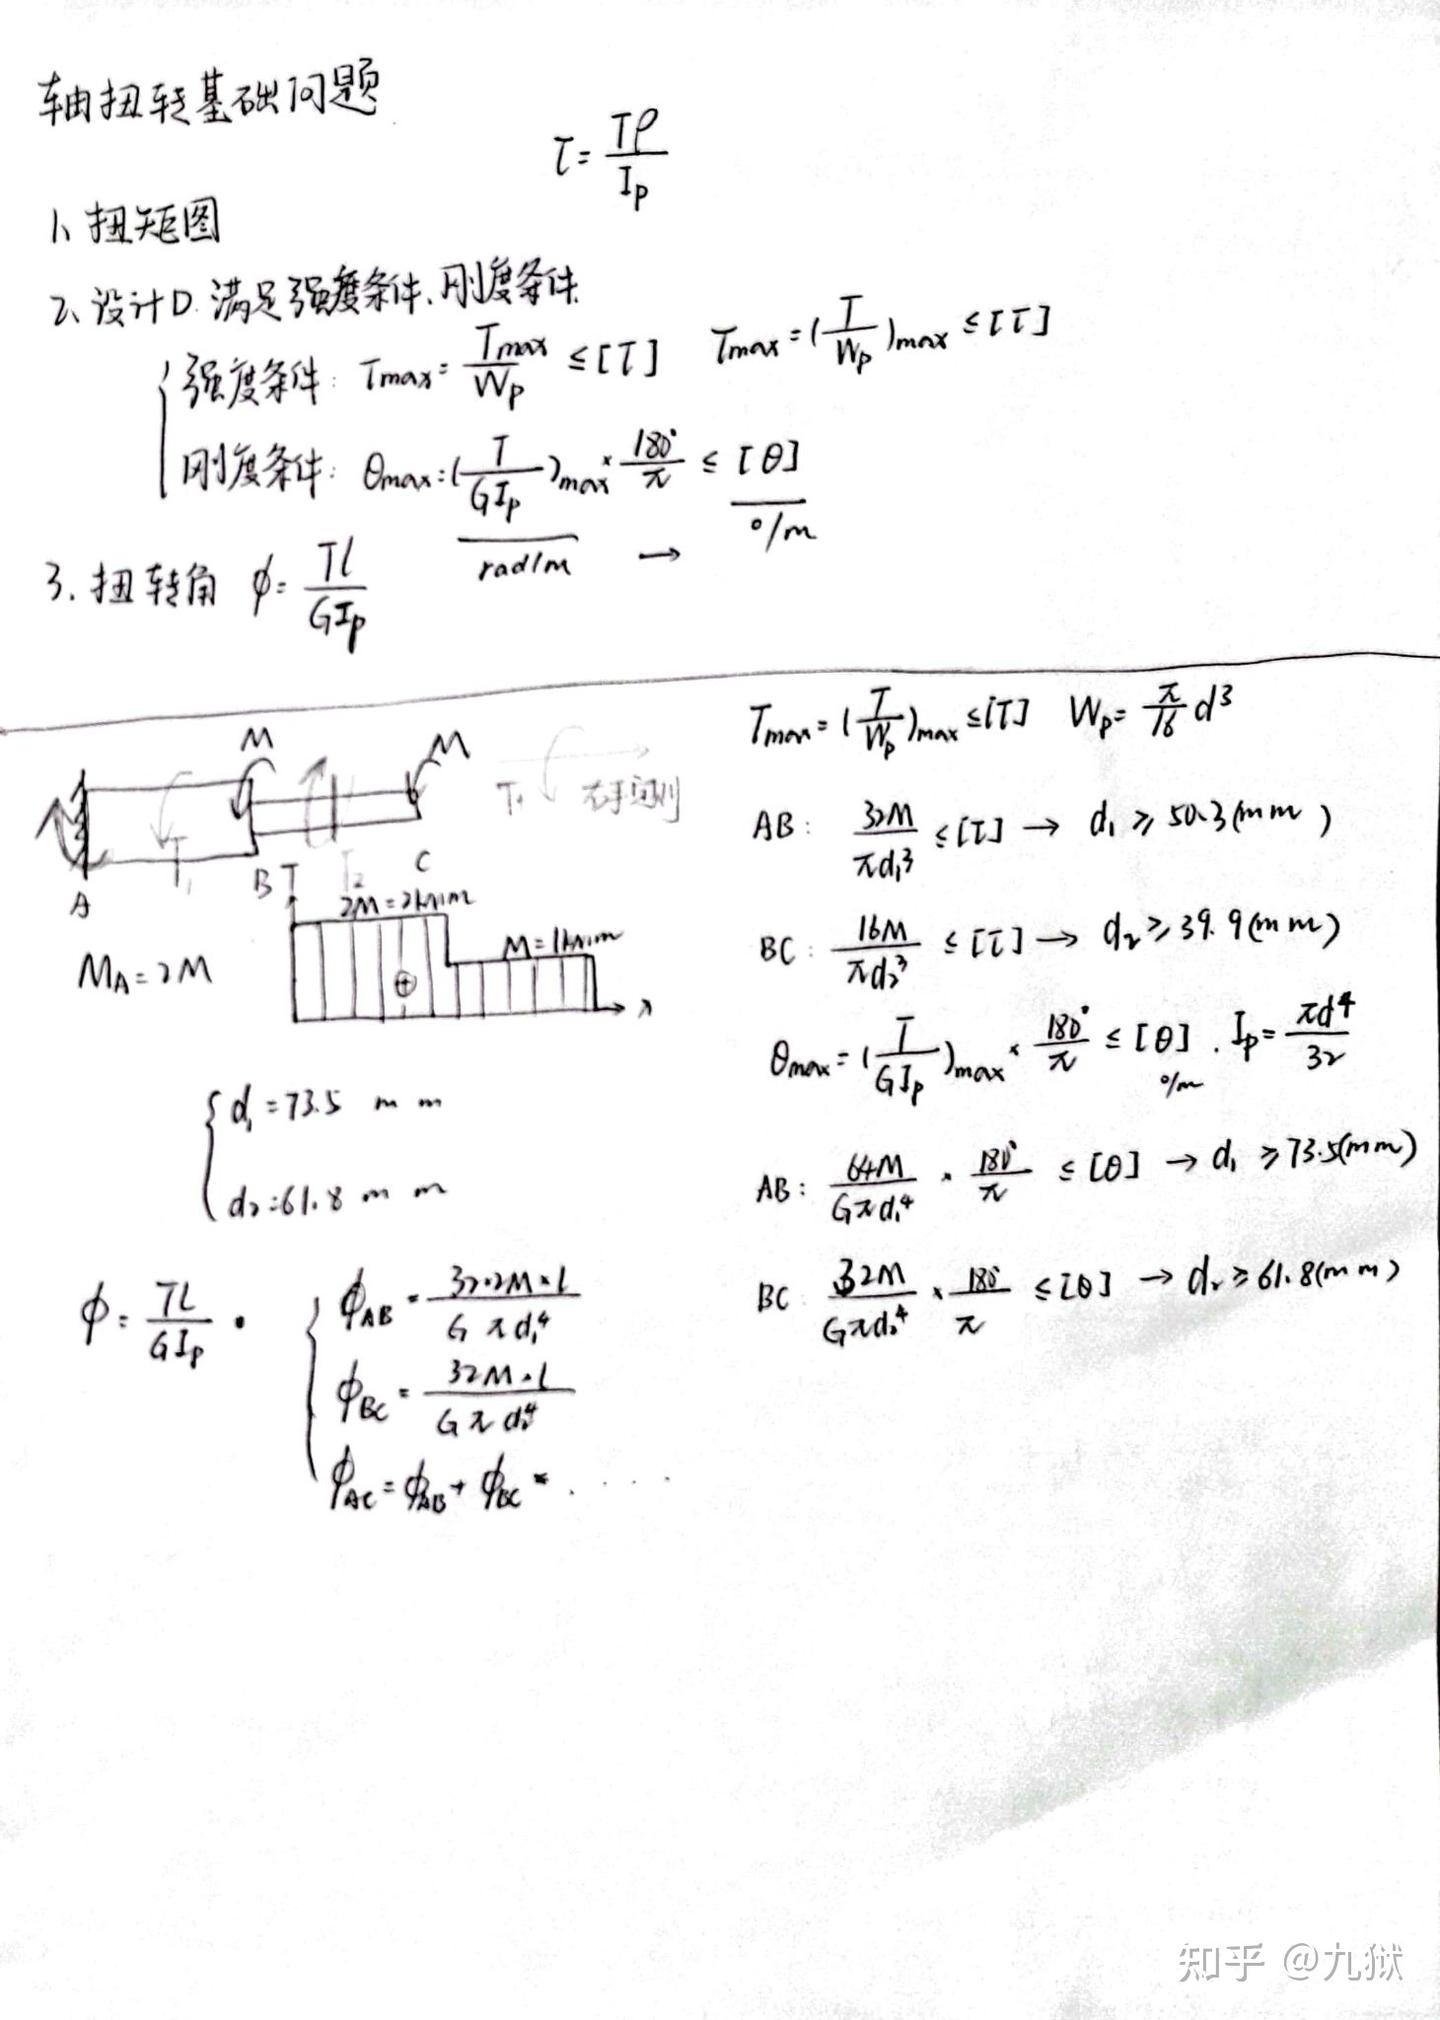 轴扭转基础问题
τ = Tρ / Ip
1、扭矩图
2、设计D 满足强度条件、刚度条件
强度条件: τmax = Tmax / Wp ≤ [τ] τmax = (T / Wp)max ≤ [τ]
刚度条件: θmax = (T / GIp)max × 180° / π ≤ [θ]
rad/m → °/m
3. 扭转角 φ = Tl / GIp
M M
T 右手定则
T1 T2
A B C
MA = 2M
T
2M = 2kN·m
M = 1kN·m
⊕
x
{ d1 = 73.5 mm
d2 = 61.8 mm
φ = Tl / GIp ·
{ φAB = 32·2M×l / Gπd1⁴
φBC = 32M·l / Gπd2⁴
φAC = φAB + φBC = ......
τmax = (T / Wp)max ≤ [τ] Wp = π/16 d³
AB: 32M / πd1³ ≤ [τ] → d1 ≥ 50.3(mm)
BC: 16M / πd2³ ≤ [τ] → d2 ≥ 39.9(mm)
θmax = (T / GIp)max × 180° / π ≤ [θ] °/m . Ip = πd⁴ / 32
AB: 64M / Gπd1⁴ · 180° / π ≤ [θ] → d1 ≥ 73.5(mm)
BC 32M / Gπd2⁴ × 180° / π ≤ [θ] → d2 ≥ 61.8(mm)
知乎 @九狱